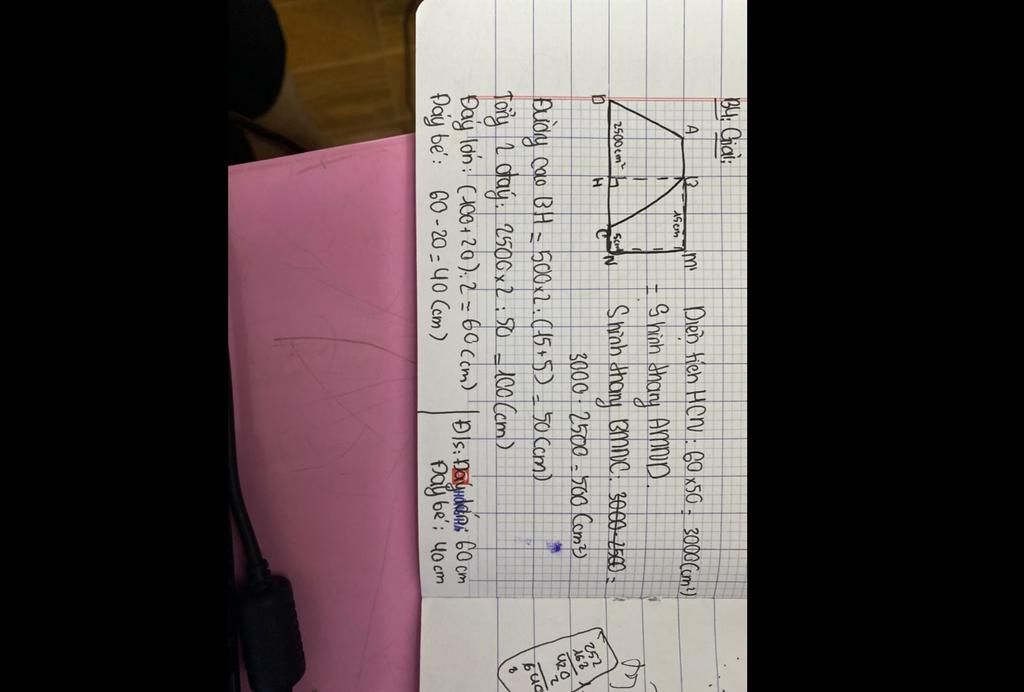 B4: Giải:
A
B
15cm
M
D
2500cm²
H
C
5cm
N
Diện tích HCN: 60 x 50 = 3000 (cm²)
= S hình thang AMND.
S hình thang BMNC: 3000-2500 =
3000 - 2500 = 500 (cm²)
Đường cao BH = 500 x 2 : (15 + 5) = 50 (cm)
Tổng 2 đáy: 2500 x 2 : 50 = 100 (cm)
Đáy lớn: (100 + 20) : 2 = 60 (cm)
Đáy bé: 60 - 20 = 40 (cm)
Đ/s: Đáy lớn: 60 cm
Đáy bé: 40 cm
252
420
2